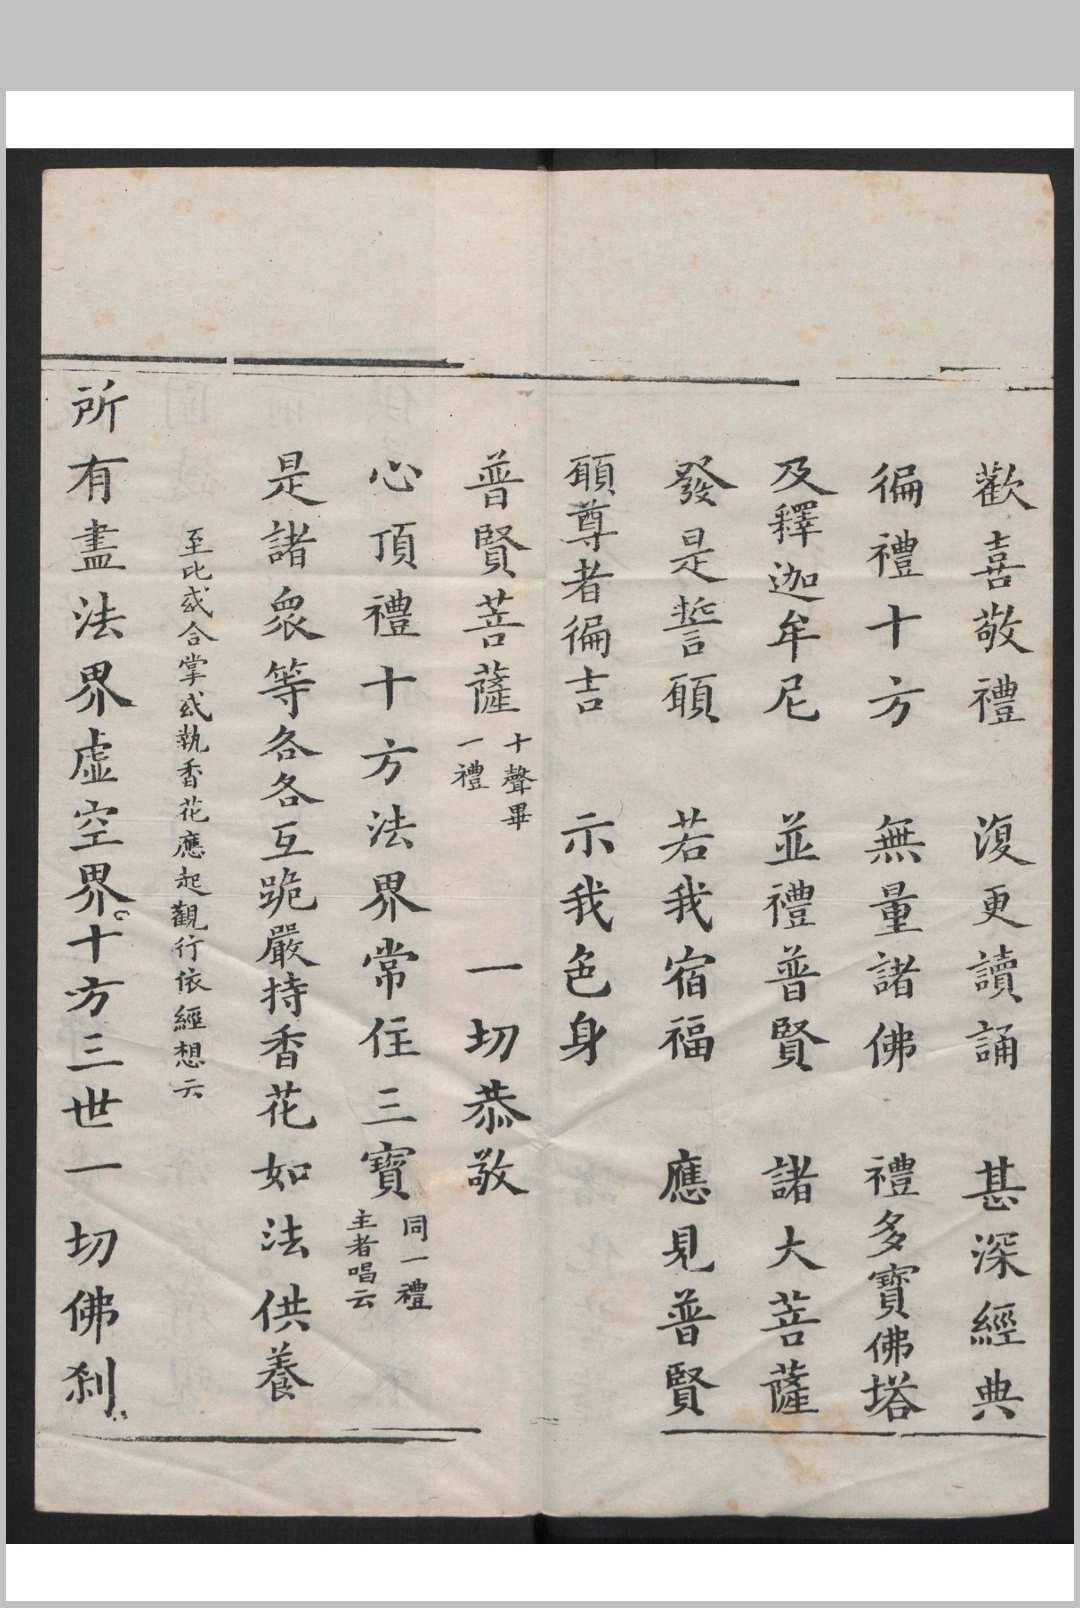 歡喜敬禮　復更讀誦　甚深經典
徧禮十方　無量諸佛　禮多寶佛塔
及釋迦牟尼　並禮普賢　諸大菩薩
發是誓願　若我宿福　應見普賢
願尊者徧吉　示我色身
普賢菩薩十聲畢一禮　一切恭敬
心頂禮十方法界常住三寶同一禮主者唱云
是諸衆等各各互跪嚴持香花如法供養
至此或合掌或執香花應起觀行依經想云
所有盡法界虛空界。十方三世一切佛刹